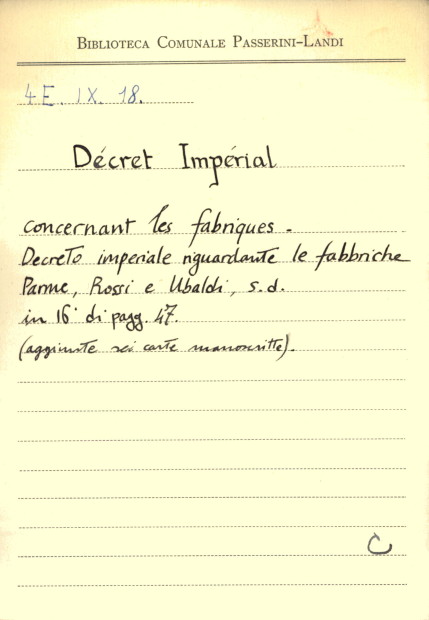 BIBLIOTECA COMUNALE PASSERINI-LANDI
4E. IX. 18.
Décret Impérial
concernant les fabriques.
Decreto imperiale riguardante le fabbriche
Parme, Rossi e Ubaldi, s.d.
in 16° di pagg. 47.
(aggiunte sei carte manoscritte).
C